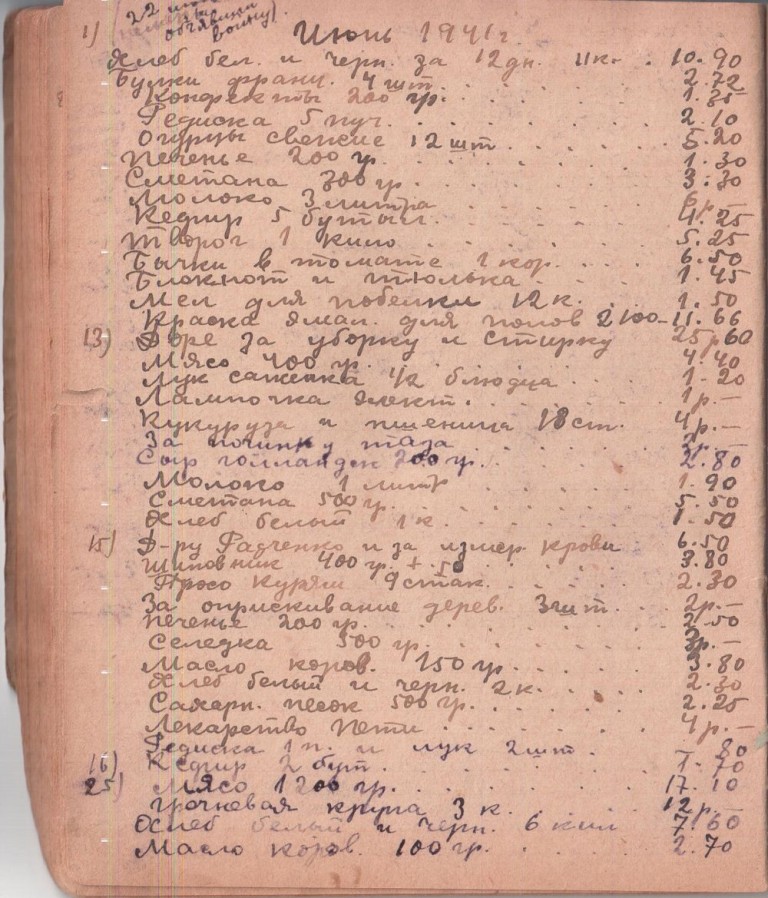 22 июня
немцы
объявили
войну)
1) Июнь 1941 г.
Хлеб бел. и черн. за 12 дн. 11 к. . 10.90
Булки франц. 4 шт. . . . 2.72
Конфекты 200 гр. . . . 1.
Редиска 5 пуч. . . . 2.10
Огурцы свежие 12 шт. . . . 5.20
Печенье 200 гр. . . . 1.30
Сметана 300 гр. . . . 3.30
Молоко 3 литра 6 р. —
Кефир 5 бутыл. . . . 4.25
Творог 1 кило . . . 5.25
Бычки в томате 1 кор. . . . 6.50
Блокнот и тюлька . . . 1.45
Мел для побелки 12 к. . . . 1.50
Краска эмал. для полов 2100 — 11.66
13) Доре за уборку и стирку 25 р 60
Мясо 400 гр. . . . 4.40
Лук саженка 1/2 блюдца . . . 1.20
Лампочка элект. . . . 1 р. —
Кукуруза и пшеница 18 ст. . . 4 р. —
За починку таза 2 р. —
Сыр голландск 200 гр. . . . 2.80
Молоко 1 литр . . . 1.90
Сметана 500 гр. . . . 5.50
Хлеб белый 1 к. . . . 1.50
15) Д-ру Радченко и за измер. крови 6.50
Шиповник 400 гр. + .50 3.80
Просо курям 9 стак. . . . 2.30
За оприскивание дерев. 3 шт. . . 2 р. —
Печенье 200 гр. . . . 2.50
Селедка 500 гр. . . . 3 р. —
Масло коров. 150 гр. . . . 3.80
Хлеб белый и черн. 2 к. . . . 2.30
Сахарн. песок 500 гр. . . . 2.25
Лекарство Пети . . . 4 р. —
Редиска 1 п. и лук 2 шт. . . 80
16) Кефир 2 бут. . . . 1.70
25) Мясо 1200 гр. . . . 17.10
Гречневая крупа 3 к. . . . 12 р. —
Хлеб белый и черн. 6 кил 7.60
Масло коров. 100 гр. . . . 2.70